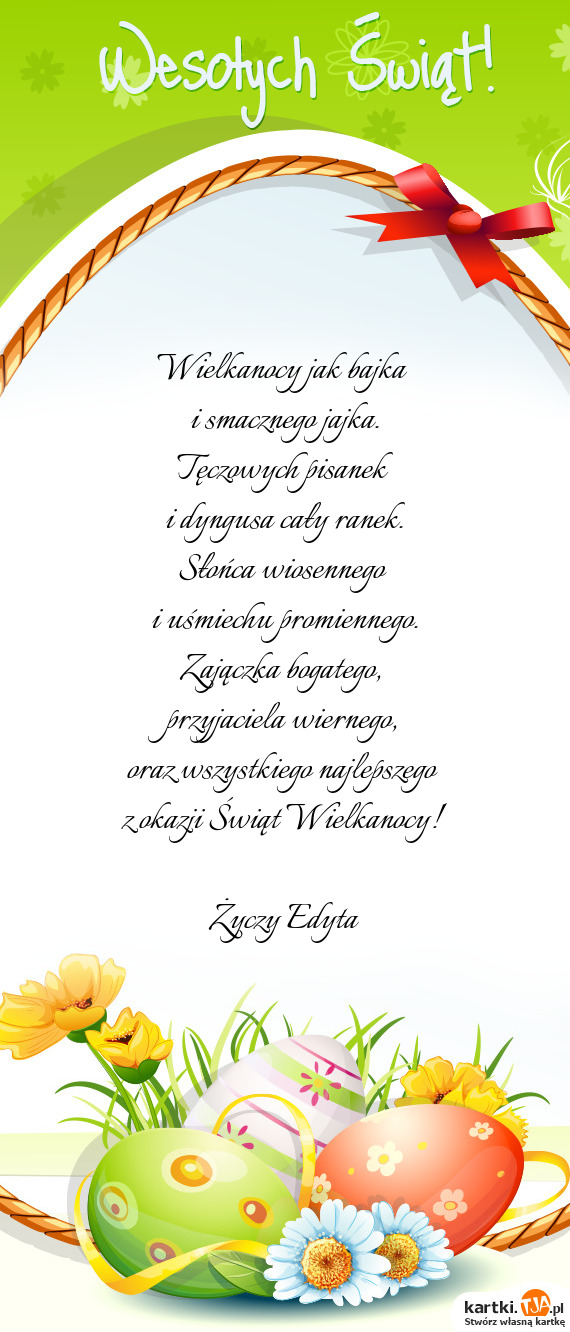 Wesołych Świąt!
Wielkanocy jak bajka
i smacznego jajka.
Tęczowych pisanek
i dyngusa cały ranek.
Słońca wiosennego
i uśmiechu promiennego.
Zajączka bogatego,
przyjaciela wiernego,
oraz wszystkiego najlepszego
z okazji Świąt Wielkanocy!
Życzy Edyta
kartki.TJA.pl
Stwórz własną kartkę